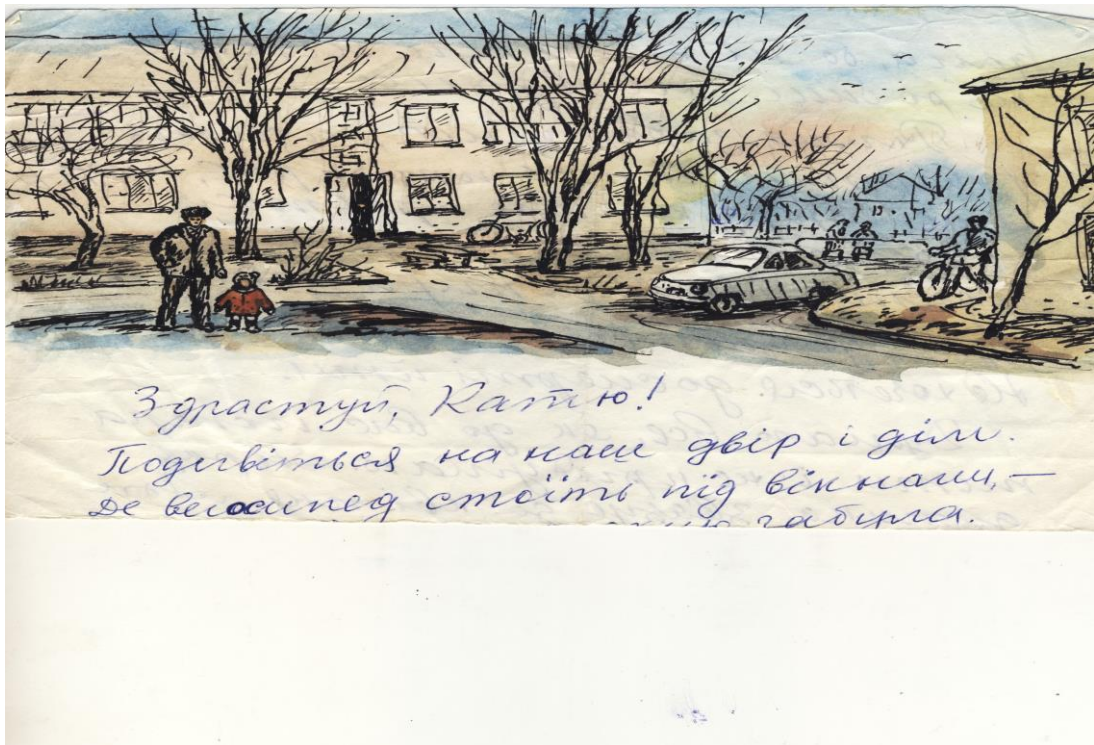 Здрастуй, Катю!
Подивіться на наш двір і дім.
Де велосипед стоїть під вікнами, –
забула.